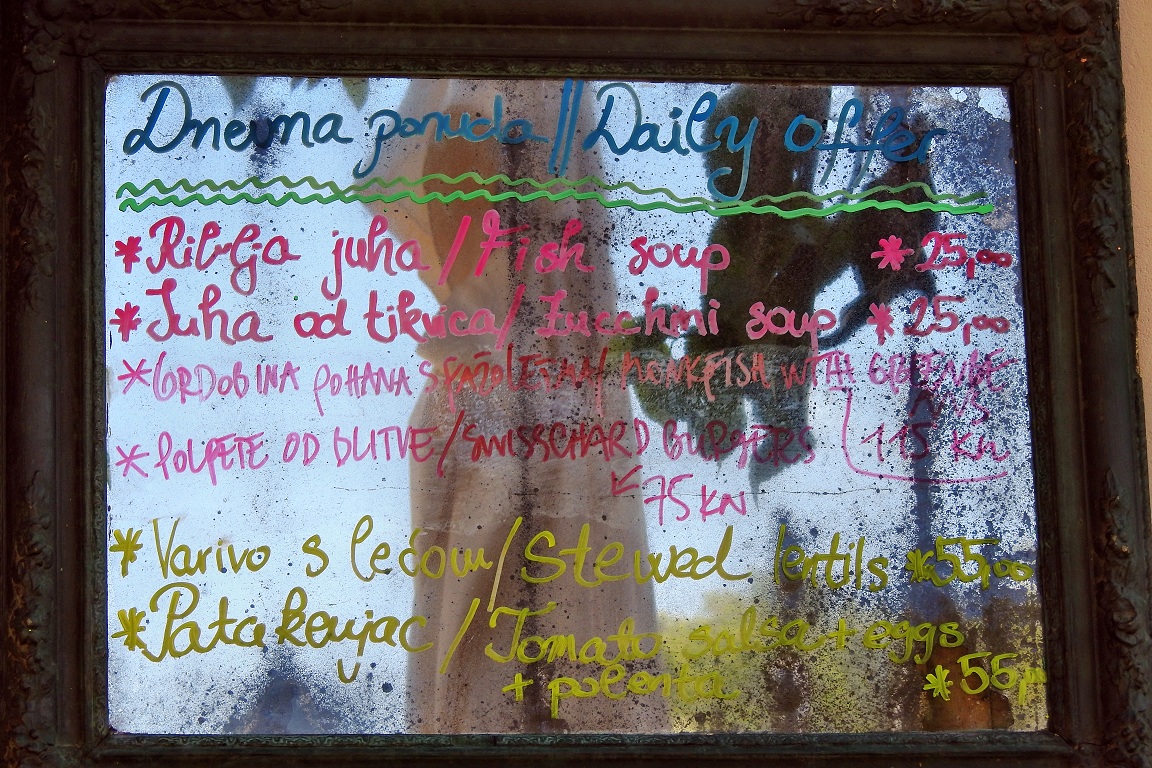 Dnevna ponuda // Daily offer
* Riblja juha / Fish soup * 25,00
* Juha od tikvica / Zucchini soup * 25,00
* GRDOBINA POHANA S / MONKFISH WITH
* POLPETE OD BLITVE / SWISSCHARD BURGERS 115 KN
75 KN
* Varivo s lećom / Stewed lentils * 55,00
* Patakenjac / Tomato salsa + eggs
+ polenta * 55,00